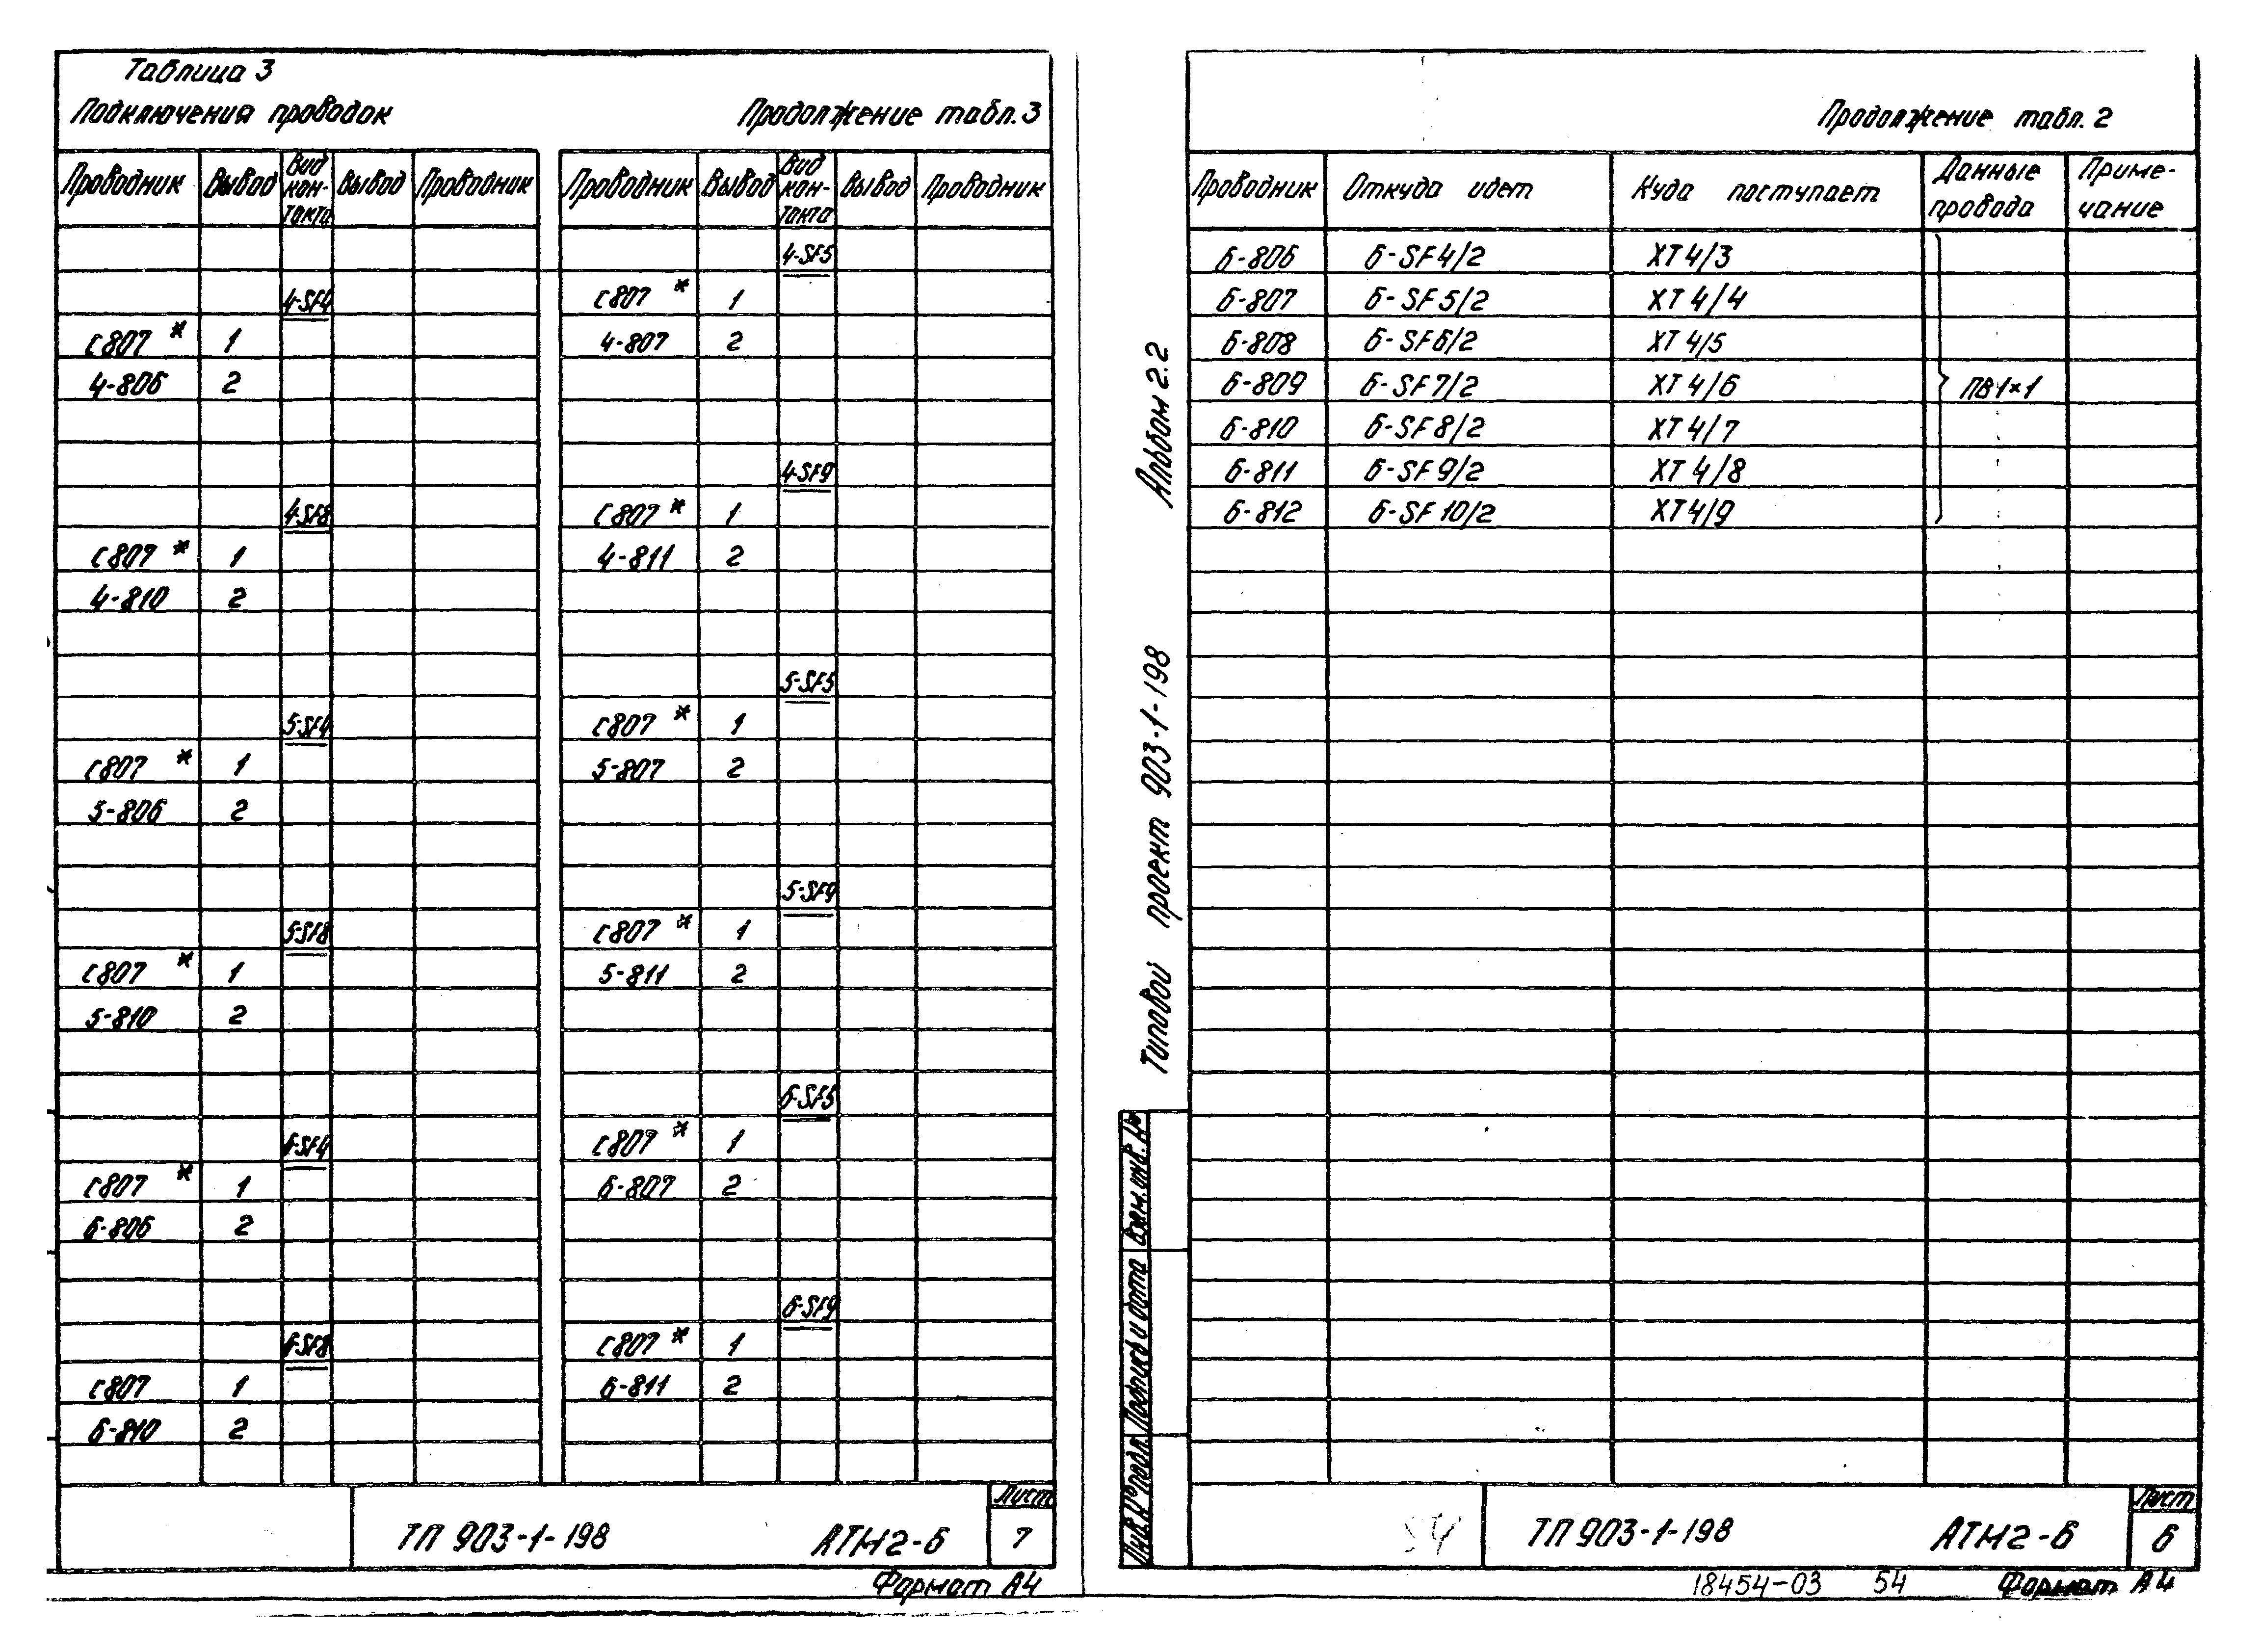 Таблица 3
Подключения проводок
Продолжение табл. 3
Проводник Вывод Вид кон-такта Вывод Проводник
4-SF4
С807 * 1
4-806 2
4-SF8
С807 * 1
4-810 2
5-SF4
С807 * 1
5-806 2
5-SF8
С807 * 1
5-810 2
6-SF4
С807 * 1
6-806 2
6-SF8
С807 1
6-810 2
Проводник Вывод Вид кон-такта Вывод Проводник
4-SF5
С807 * 1
4-807 2
4-SF9
С807 * 1
4-811 2
5-SF5
С807 * 1
5-807 2
5-SF9
С807 * 1
5-811 2
6-SF5
С807 * 1
6-807 2
6-SF9
С807 * 1
6-811 2
ТП 903-1-198 АТМ2-6 Лист 7
Формат А4
Продолжение табл. 2
Проводник Откуда идет Куда поступает Данные провода Приме-чание
6-806 6-SF4/2 XT4/3
6-807 6-SF5/2 XT4/4
6-808 6-SF6/2 XT4/5
6-809 6-SF7/2 XT4/6 ПВ1×1
6-810 6-SF8/2 XT4/7
6-811 6-SF9/2 XT4/8
6-812 6-SF10/2 XT4/9
Типовой проект 903-1-198 Альбом 2.2
Инв.№ подл. Подпись и дата Взам.инв.№
54 ТП 903-1-198 АТМ2-6 Лист 6
18454-03 54 Формат А4